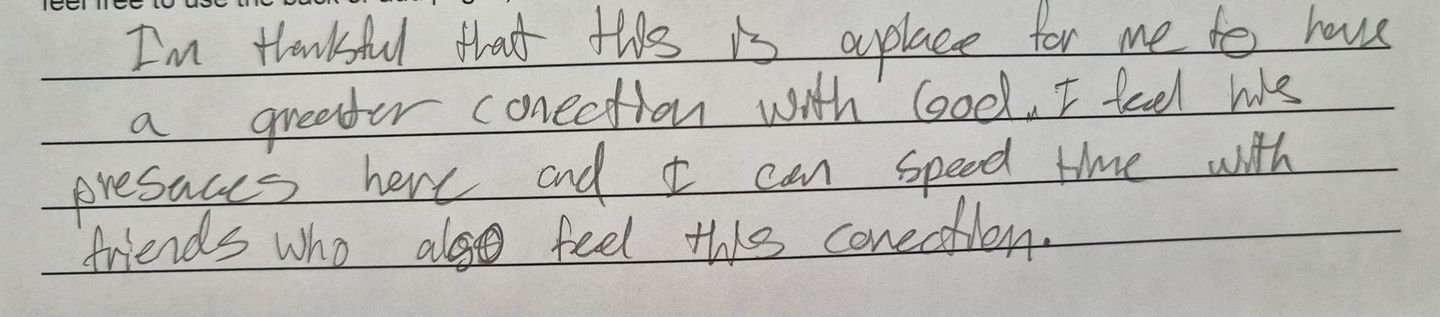 feel free to use the back or add pag
I'm thankful that this is a place for me to have
a greater conection with God. I feel his
presaces here and I can spead time with
friends who also feel this conection.